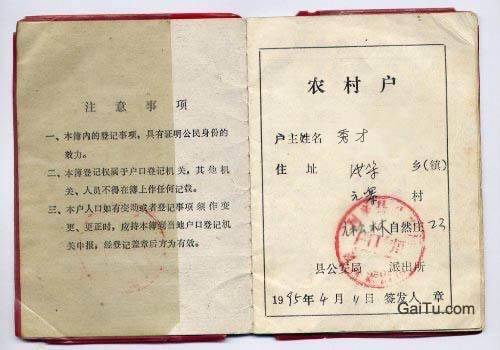 注意事项
一、本簿内的登记事项，具有证明公民身份的
效力。
二、本簿登记权属于户口登记机关，其他机
关、人员不得在簿上作任何记载。
三、本户人口如有变动或者登记事项须作变
更、更正时，应持本簿到当地户口登记机
关申报，经登记盖章后方为有效。
农村户
户主姓名 秀才
住址 乡（镇）
村
林自然庄 23
县公安局 派出所
1995年4月11日 签发人 章
GaiTu.com